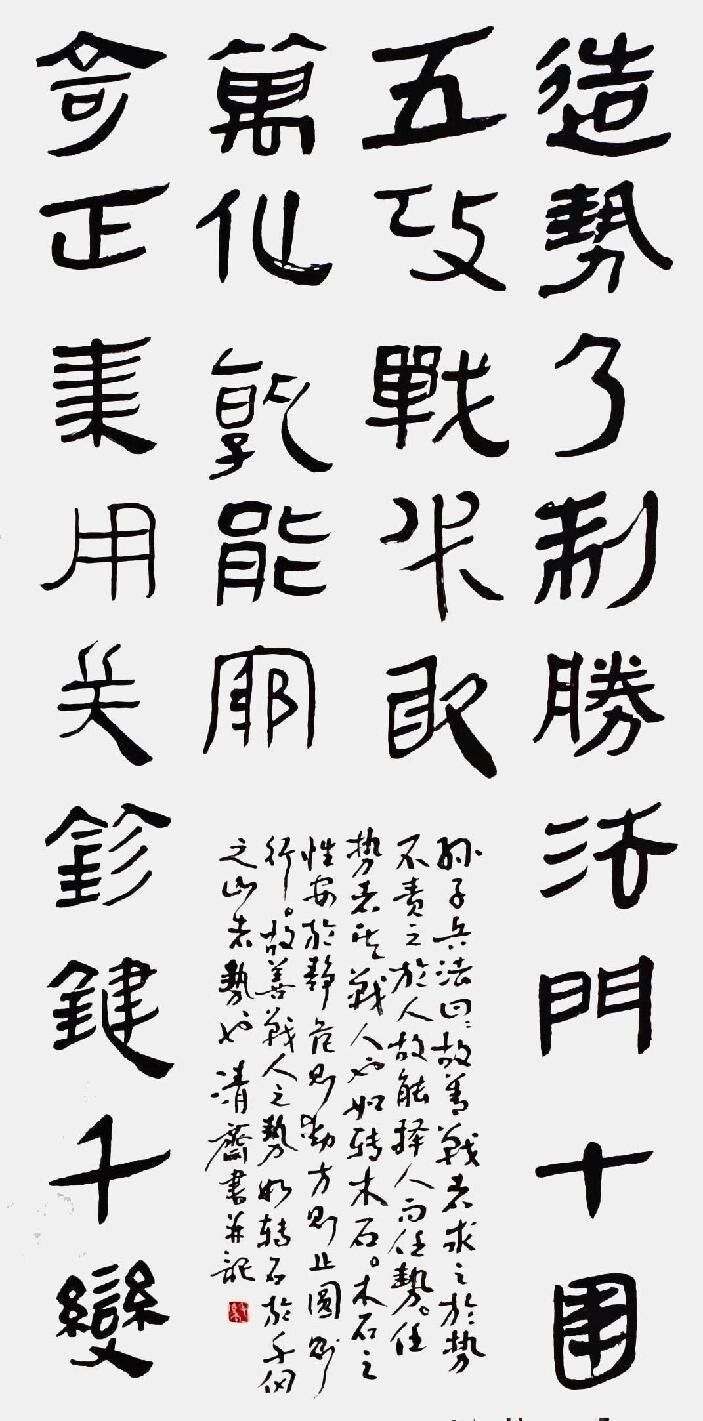 造勢乃制勝法門十圍
五攻戰必取
奇正用关鈐鍵千變
萬化孰能窮
孫子兵法曰:故善戰者求之於勢
不責之於人故能擇人而任勢。任
势者其戰人也如转木石。木石之
性安於静危则動方则止圓则
行。故善戰人之勢如转石於千仞
之山者勢也清齋書并記